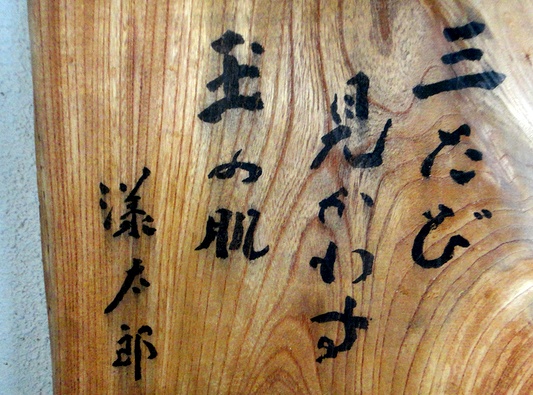 三たび
見かわす
玉の肌
漾太郎